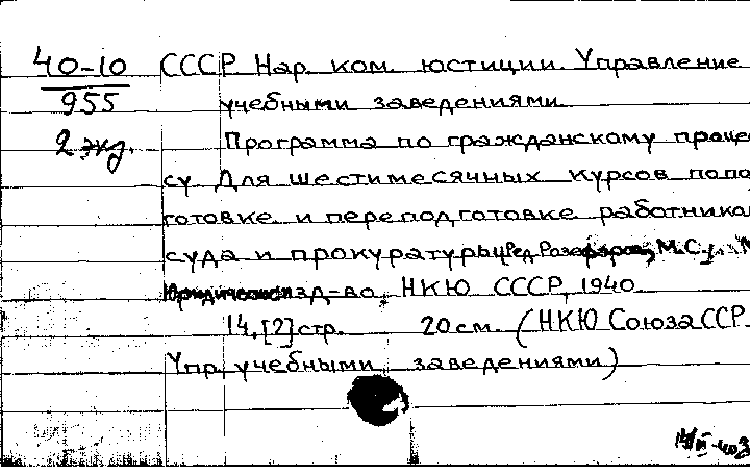 40-10 СССР Нар. ком. юстиции. Управление
955 учебными заведениями.
2 экз. Программа по гражданскому процес
су Для шестимесячных курсов по
готовке и переподготовке работнико
суда и прокуратуры Ред. М.С.
Юридическ изд-во, НКЮ СССР, 1940
14, [2] стр. 20 см. (НКЮ Союза ССР.
Упр. учебными заведениями)